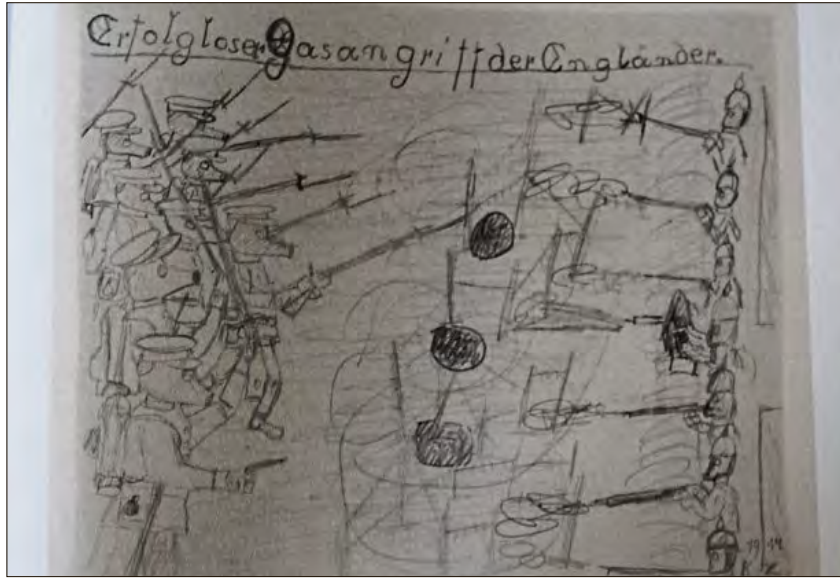 Erfolgloser Gasangriff der Engländer.